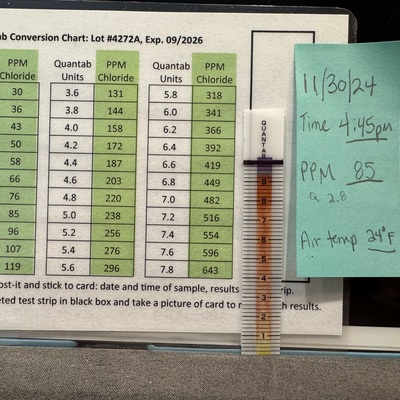 ab Conversion Chart: Lot #4272A, Exp. 09/2026
PPM Chloride Quantab Units PPM Chloride Quantab Units PPM Chloride
30 3.6 131 5.8 318
36 3.8 144 6.0 341
43 4.0 158 6.2 366
50 4.2 172 6.4 392
58 4.4 187 6.6 419
66 4.6 203 6.8 449
76 4.8 220 7.0 482
85 5.0 238 7.2 516
96 5.2 256 7.4 554
107 5.4 276 7.6 597
119 5.6 296 7.8 643
ost-it and stick to card: date and time of sample, results
rip.
eted test strip in black box and take a picture of card to
ch results.
QUANTAB
9
8
7
6
5
4
3
2
1
11/30/24
Time 4:45pm
PPM 85
Q 2.8
Air temp 24°F